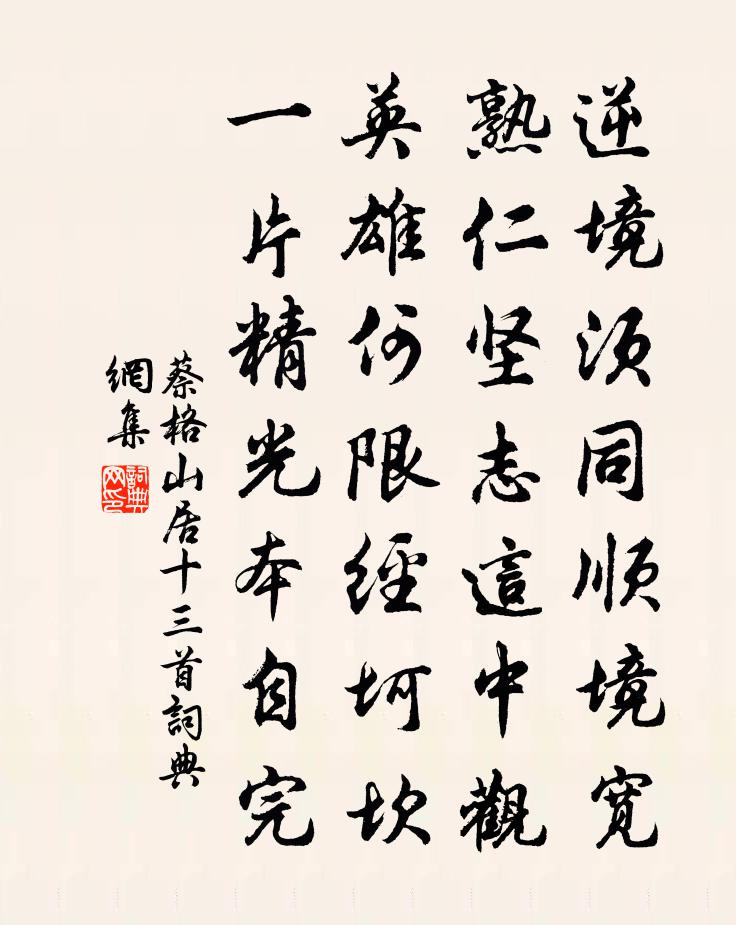 逆境须同顺境寛
熟仁坚志這中觀
英雄何限經坷坎
一片精光本自完
蔡格山居十三首詞典
網集
詞典
网印